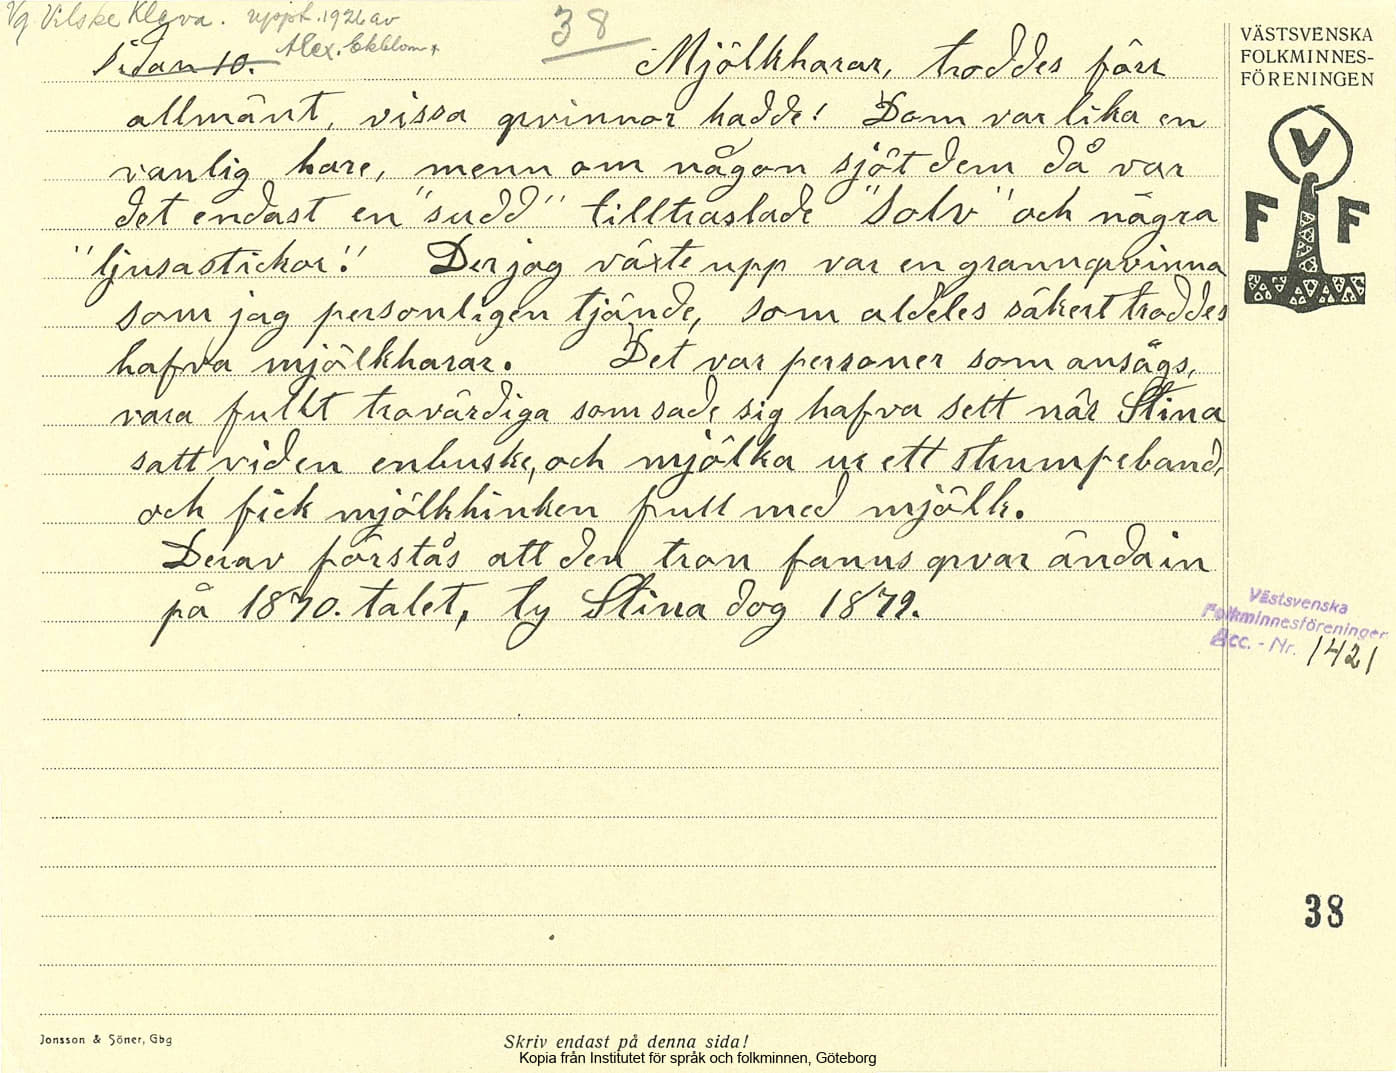 Vg Vilske Kleva. uppt. 1926 av
Alex. Ekblom
Sidan 10.
38
Mjölkharar, troddes förr
allmänt, vissa qvinnor hadde! Dom var lika en
vanlig hare, menn om någon sjöt dem då var
det endast en "sudd" tilltraslade "solv" och några
"ljusastickor!" Der jag växte upp var en grannqvinna
som jag personligen tjände, som aldeles säkert troddes
hafva mjölkharar. Det var personer som ansågs,
vara fullt trovärdiga som sade sig hafva sett när Stina
satt viden enbuske, och mjölka ur ett strumpeband,
och fick mjölkhinken full med mjölk.
Derav förstås att den tron fanns qvar ända in
på 1870. talet, ty Stina dog 1879.
VÄSTSVENSKA
FOLKMINNES-
FÖRENINGEN
V
F F
Västsvenska
Folkminnesföreningen
Acc. - Nr. 1421
38
Jonsson & Söner, Gbg
Skriv endast på denna sida!
Kopia från Institutet för språk och folkminnen, Göteborg